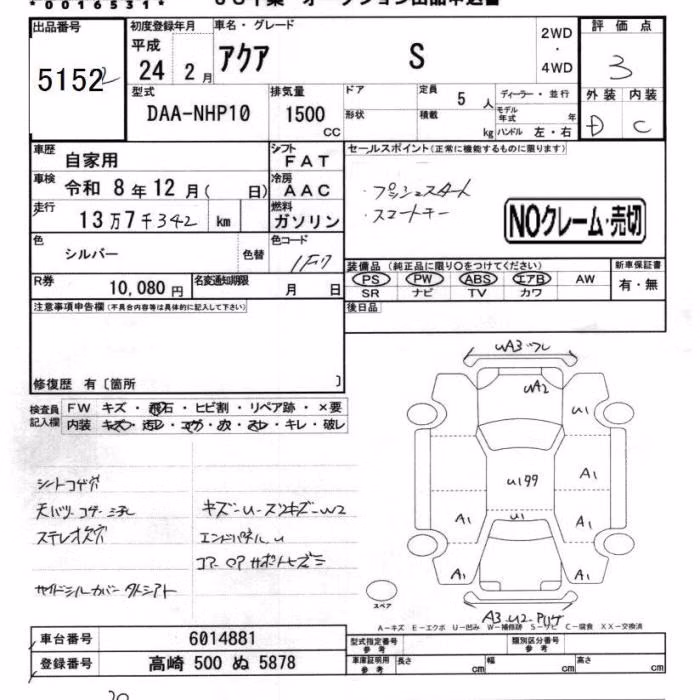 *0016531*
出品番号
5152
初度登録年月
平成
24 2月
車名・グレード
アクア S
2WD
・
4WD
評価点
3
外装 内装
D C
型式
DAA-NHP10
排気量
1500
CC
ドア
形状
定員
5人
積載
kg
ディーラー・並行
モデル年式 年
ハンドル 左・右
車歴 自家用
シフト FAT
車検 令和 8年 12月( 日)
冷房 AAC
走行 13万7千342 km
燃料 ガソリン
色 シルバー 色替
色コード 1F7
R券 10,080円
名変通知期限 月 日
セールスポイント(正常に機能するものに限ります)
・プッシュスタート
・スマートキー
NOクレーム・売切
装備品(純正品に限り○をつけてください)
PS PW ABS エアB AW
SR ナビ TV カワ
新車保証書
有・無
後日品
注意事項申告欄(不具合内容等は具体的に記入して下さい)
修復歴 有〔箇所 〕
検査員記入欄
FW キズ・飛石・ヒビ割・リペア跡・×要
内装 キズ・汚レ・コゲ・穴・スレ・キレ・破レ
シートコゲ穴
ステレオ穴
キズ-U-スリキズ-W2
エンドパネルU
サイドシルカバータトシアト
UA3
UA2
U1
U199
A1
A1
U1
A1
A1
A1
A3 U2
スペア
A-キズ E-エクボ U-凹み W-補修跡 S-サビ C-腐食 XX-交換済
車台番号 6014881
登録番号 高崎 500 ぬ 5878
型式指定番号 参考
類別区分番号 参考
車庫証明用 参考 長さ cm 幅 cm 高さ cm